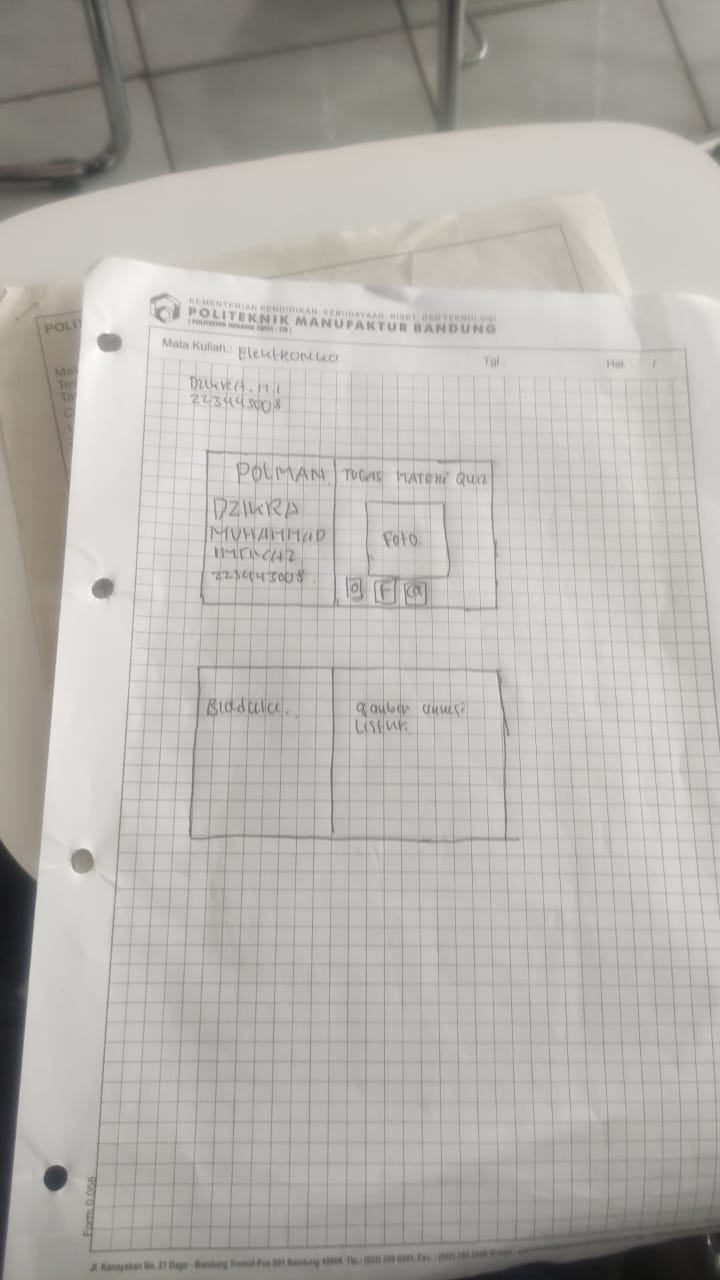 POLIT
KEMENTERIAN PENDIDIKAN, KEBUDAYAAN, RISET, DAN TEKNOLOGI
POLITEKNIK MANUFAKTUR BANDUNG
( POLITEKNIK MEKANIK SWISS - ITB )
Mata Kuliah.: Elektronika
Tgl
Hal. /
Dzikra.M.I
223443008
POLMAN
TUGAS MATERI QUIZ
DZIKRA
MUHAMMAD
223443008
FOTO
F
Biodata..
gambar
Listrik
Form 0.058
Jl. Kanayakan No. 21 Dago - Bandung Tromol Pos 851 Bandung 40008. Tlp.: